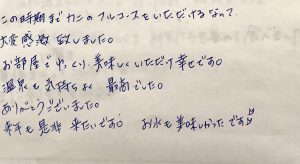 この時期まだカニのフルコースをいただけるなんて
大変感激致しました。
お部屋でゆっくり美味しくいただけ幸せです。
温泉も気持ちよく 最高でした。
ありがとうございました。
来年も是非来たいです。 お水も美味しかったです